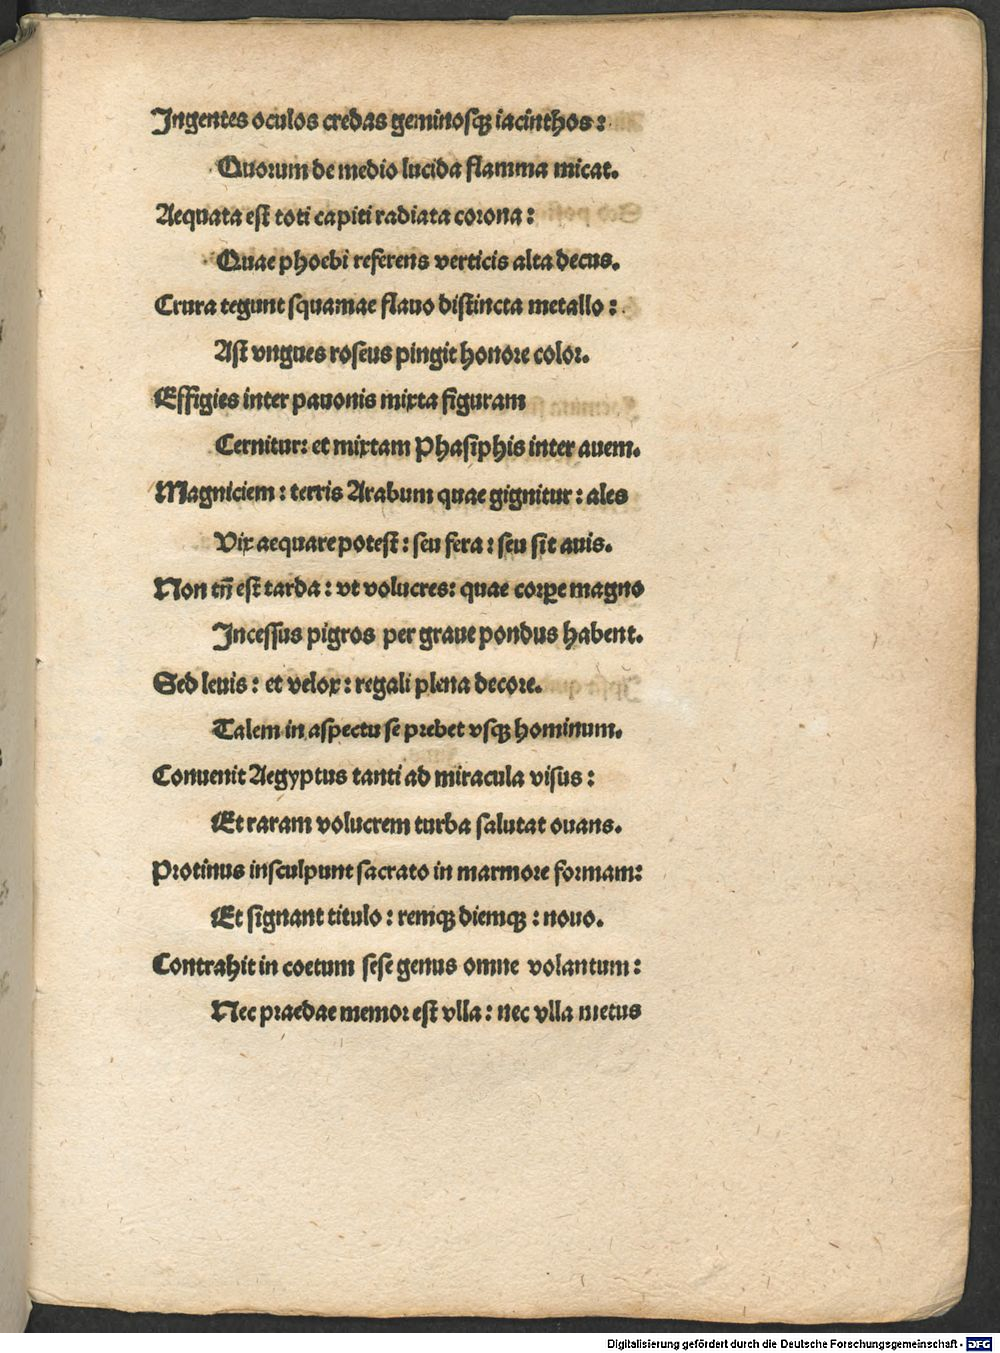 Ingentes oculos credas geminosqꝫ iacinthos:
Quorum de medio lucida flamma micat.
Aequata est toti capiti radiata corona:
Quae phoebi referens verticis alta decus.
Crura tegunt squamae flauo distincta metallo:
Ast vngues roseus pingit honore color.
Effigies inter pauonis mixta figuram
Cernitur: et mixtam Phasiphis inter auem.
Magniciem: terris Arabum quae gignitur: ales
Vix aequare potest: seu fera: seu sit auis.
Non tñ est tarda: vt volucres: quae corꝑe magno
Incessus pigros per graue pondus habent.
Sed leuis: et velox: regali plena decore.
Talem in aspectu se prebet vsqꝫ hominum.
Conuenit Aegyptus tanti ad miracula visus:
Et raram volucrem turba salutat ouans.
Protinus insculpunt sacrato in marmore formam:
Et signant titulo: remqꝫ diemqꝫ: nouo.
Contrahit in coetum sese genus omne volantum:
Nec praedae memor est vlla: nec vlla metus
Digitalisierung gefördert durch die Deutsche Forschungsgemeinschaft - DFG